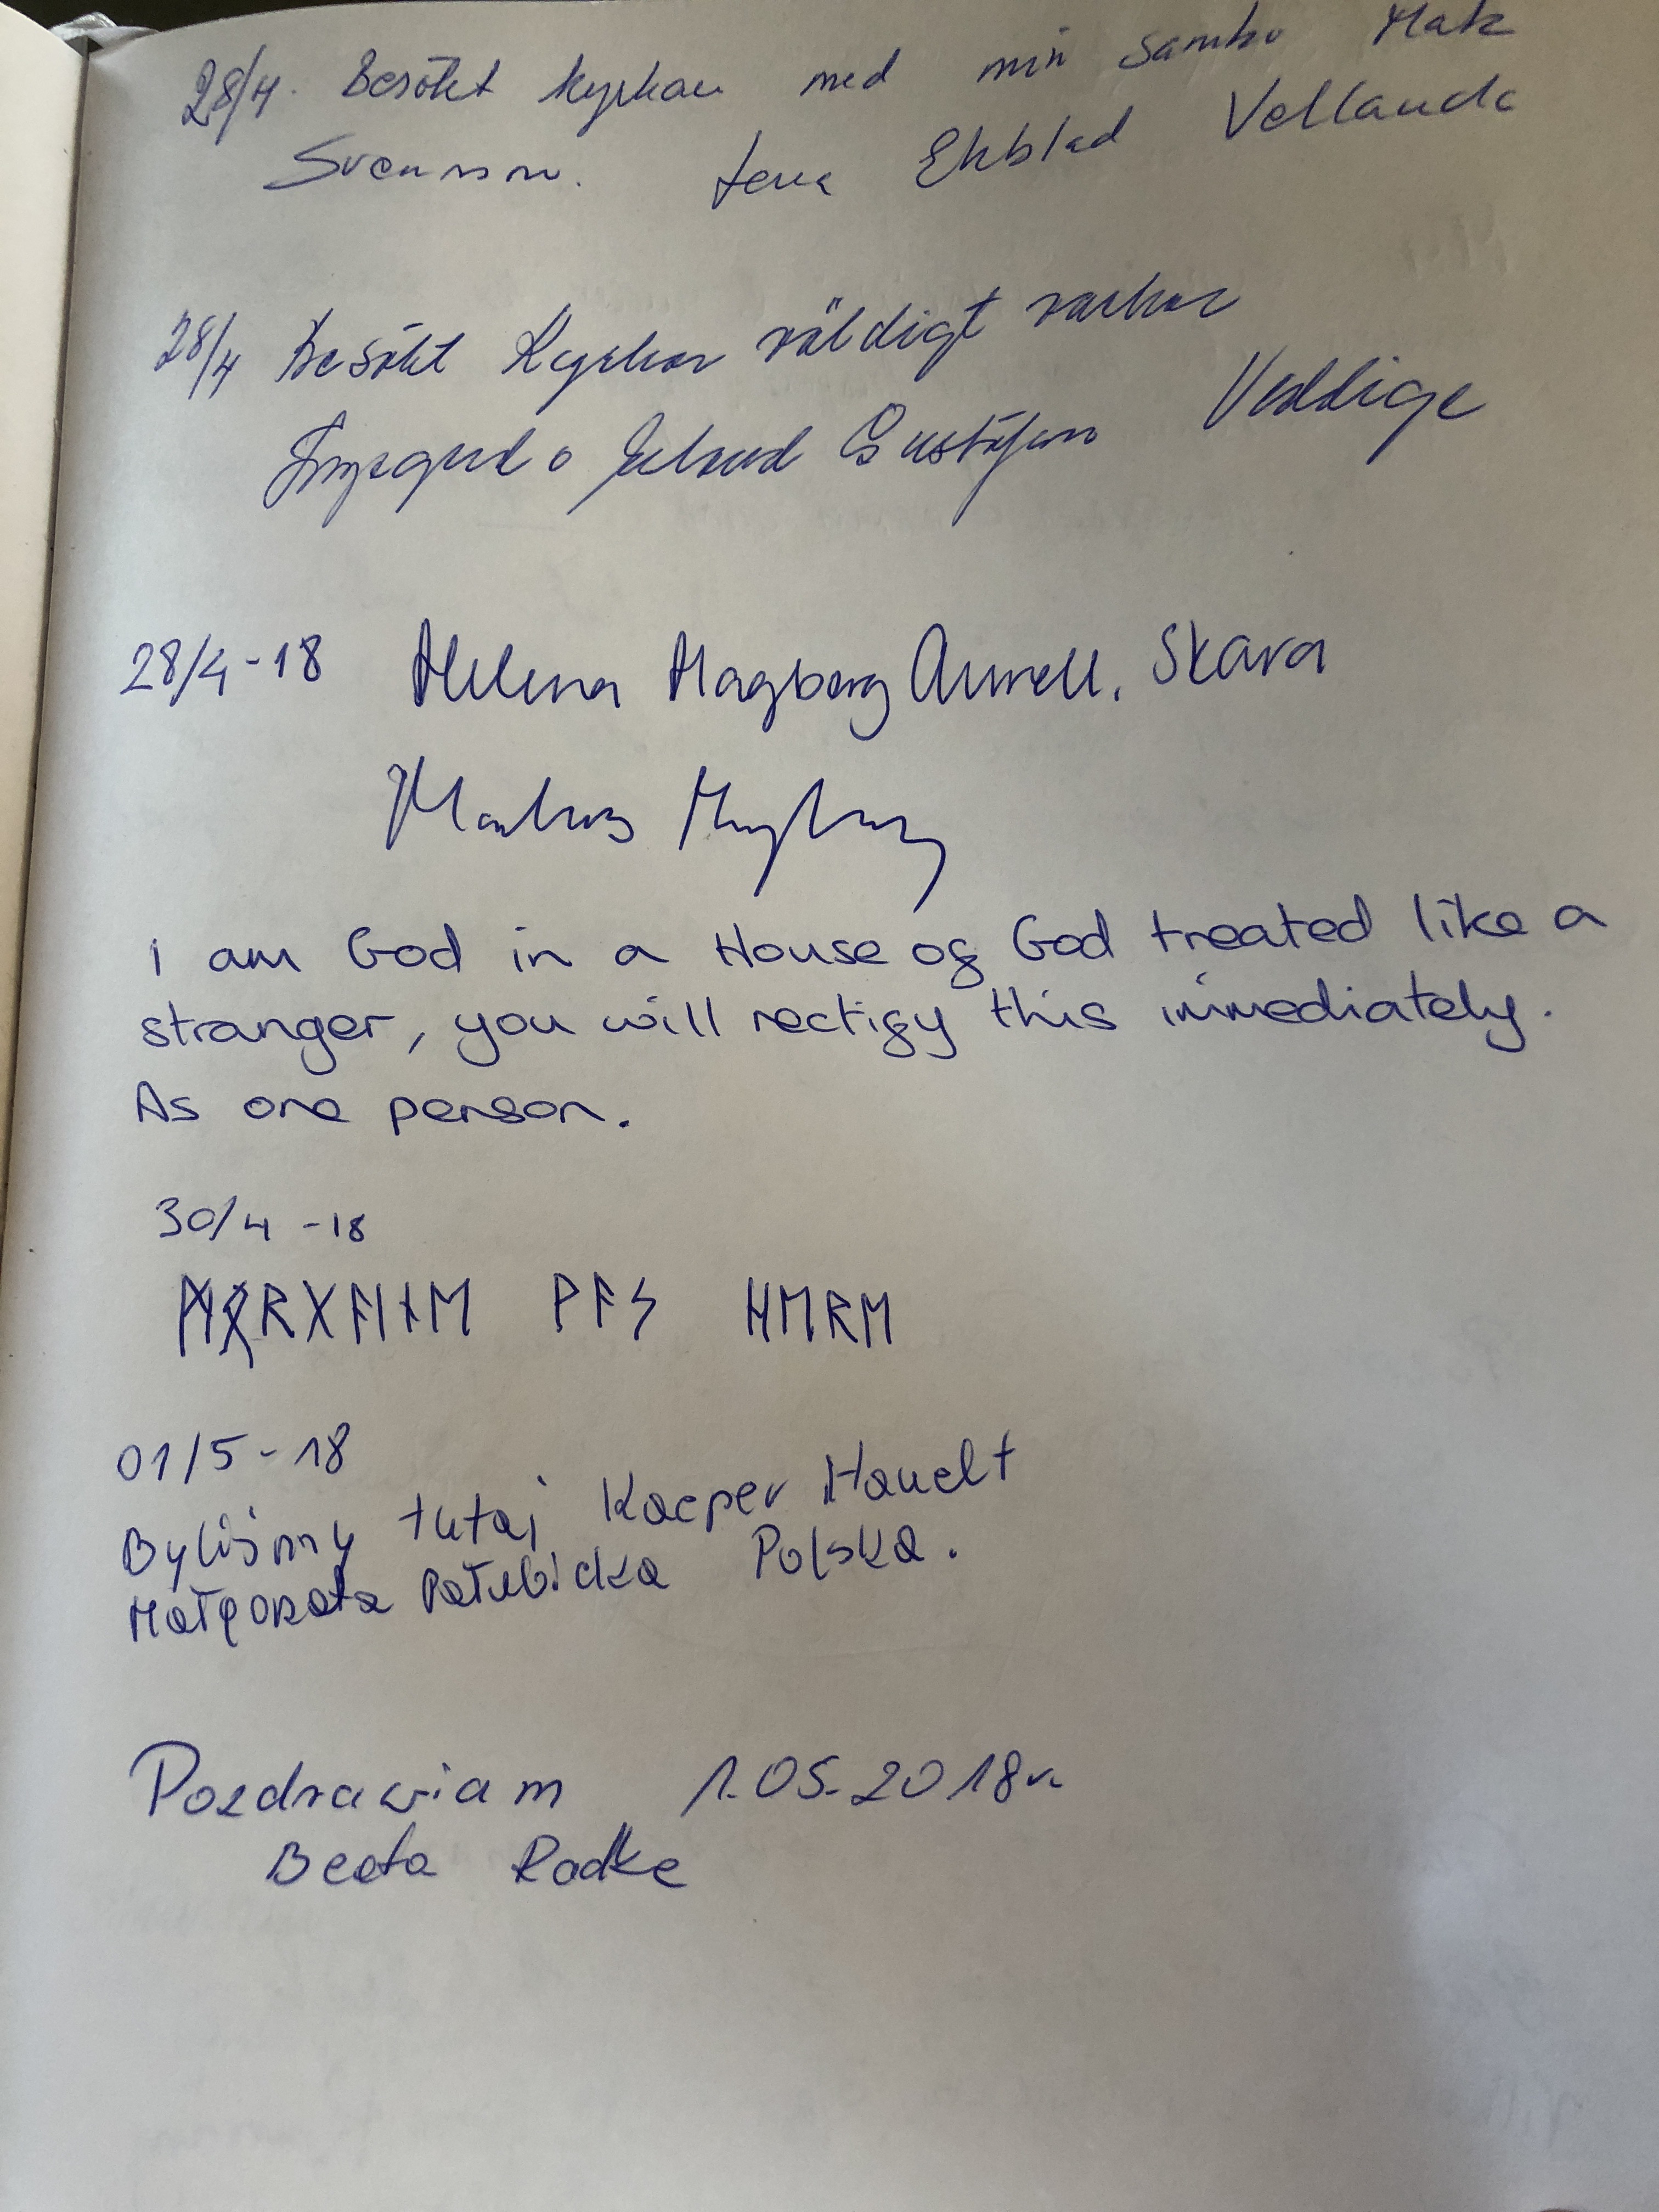 28/4. Besökt kyrkan med min sambo Mats
Svensson. Lena Ekblad Vetlanda
28/4 Besökt Kyrkan väldigt vacker
Ingegerd o Gustafsson Veddige
28/4-18 Helena Hagberg Aurell, Skara
I am God in a House of God treated like a
stranger, you will rectify this immediately.
As one person.
30/4 -18
ᛗᛟᚱᚷᚨᚾᛖ ᚹᚨᛋ ᚺᛖᚱᛖ
01/5-18
Byliśmy tutaj Kacper Haucelt
Małgorzata Pałubicka Polska.
Pozdrawiam 1.05.2018r.
Beata Radke